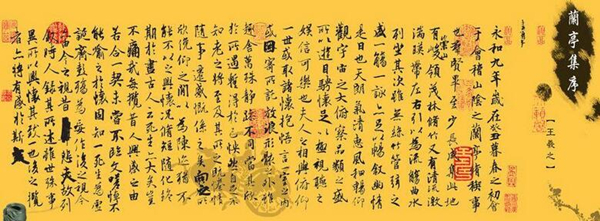 蘭亭集序
【王羲之】
永和九年歲在癸丑暮春之初會
于會稽山陰之蘭亭脩稧事
也群賢畢至少長咸集此地
有崇山峻領茂林脩竹又有清流激
湍暎帶左右引以為流觴曲水
列坐其次雖無絲竹管弦之
盛一觴一詠亦足以暢敘幽情
是日也天朗氣清惠風和暢仰
觀宇宙之大俯察品類之盛
所以遊目騁懷足以極視聽之
娛信可樂也夫人之相與俯仰
一世或取諸懷抱悟言一室之內
或因寄所託放浪形骸之外雖
趣舍萬殊靜躁不同當其欣
於所遇暫得於己怏然自足不
知老之將至及其所之既惓情
隨事遷感慨係之矣向之所
欣俛仰之間以為陳迹猶不
能不以之興懷況脩短隨化終
期於盡古人云死生亦大矣豈
不痛哉每攬昔人興感之由
若合一契未嘗不臨文嗟悼不
能喻之於懷固知一死生為虛
誕齊彭殤為妄作後之視今
亦由今之視昔悲夫故列
敘時人錄其所述雖世殊事
異所以興懷其致一也後之攬
者亦將有感於斯文